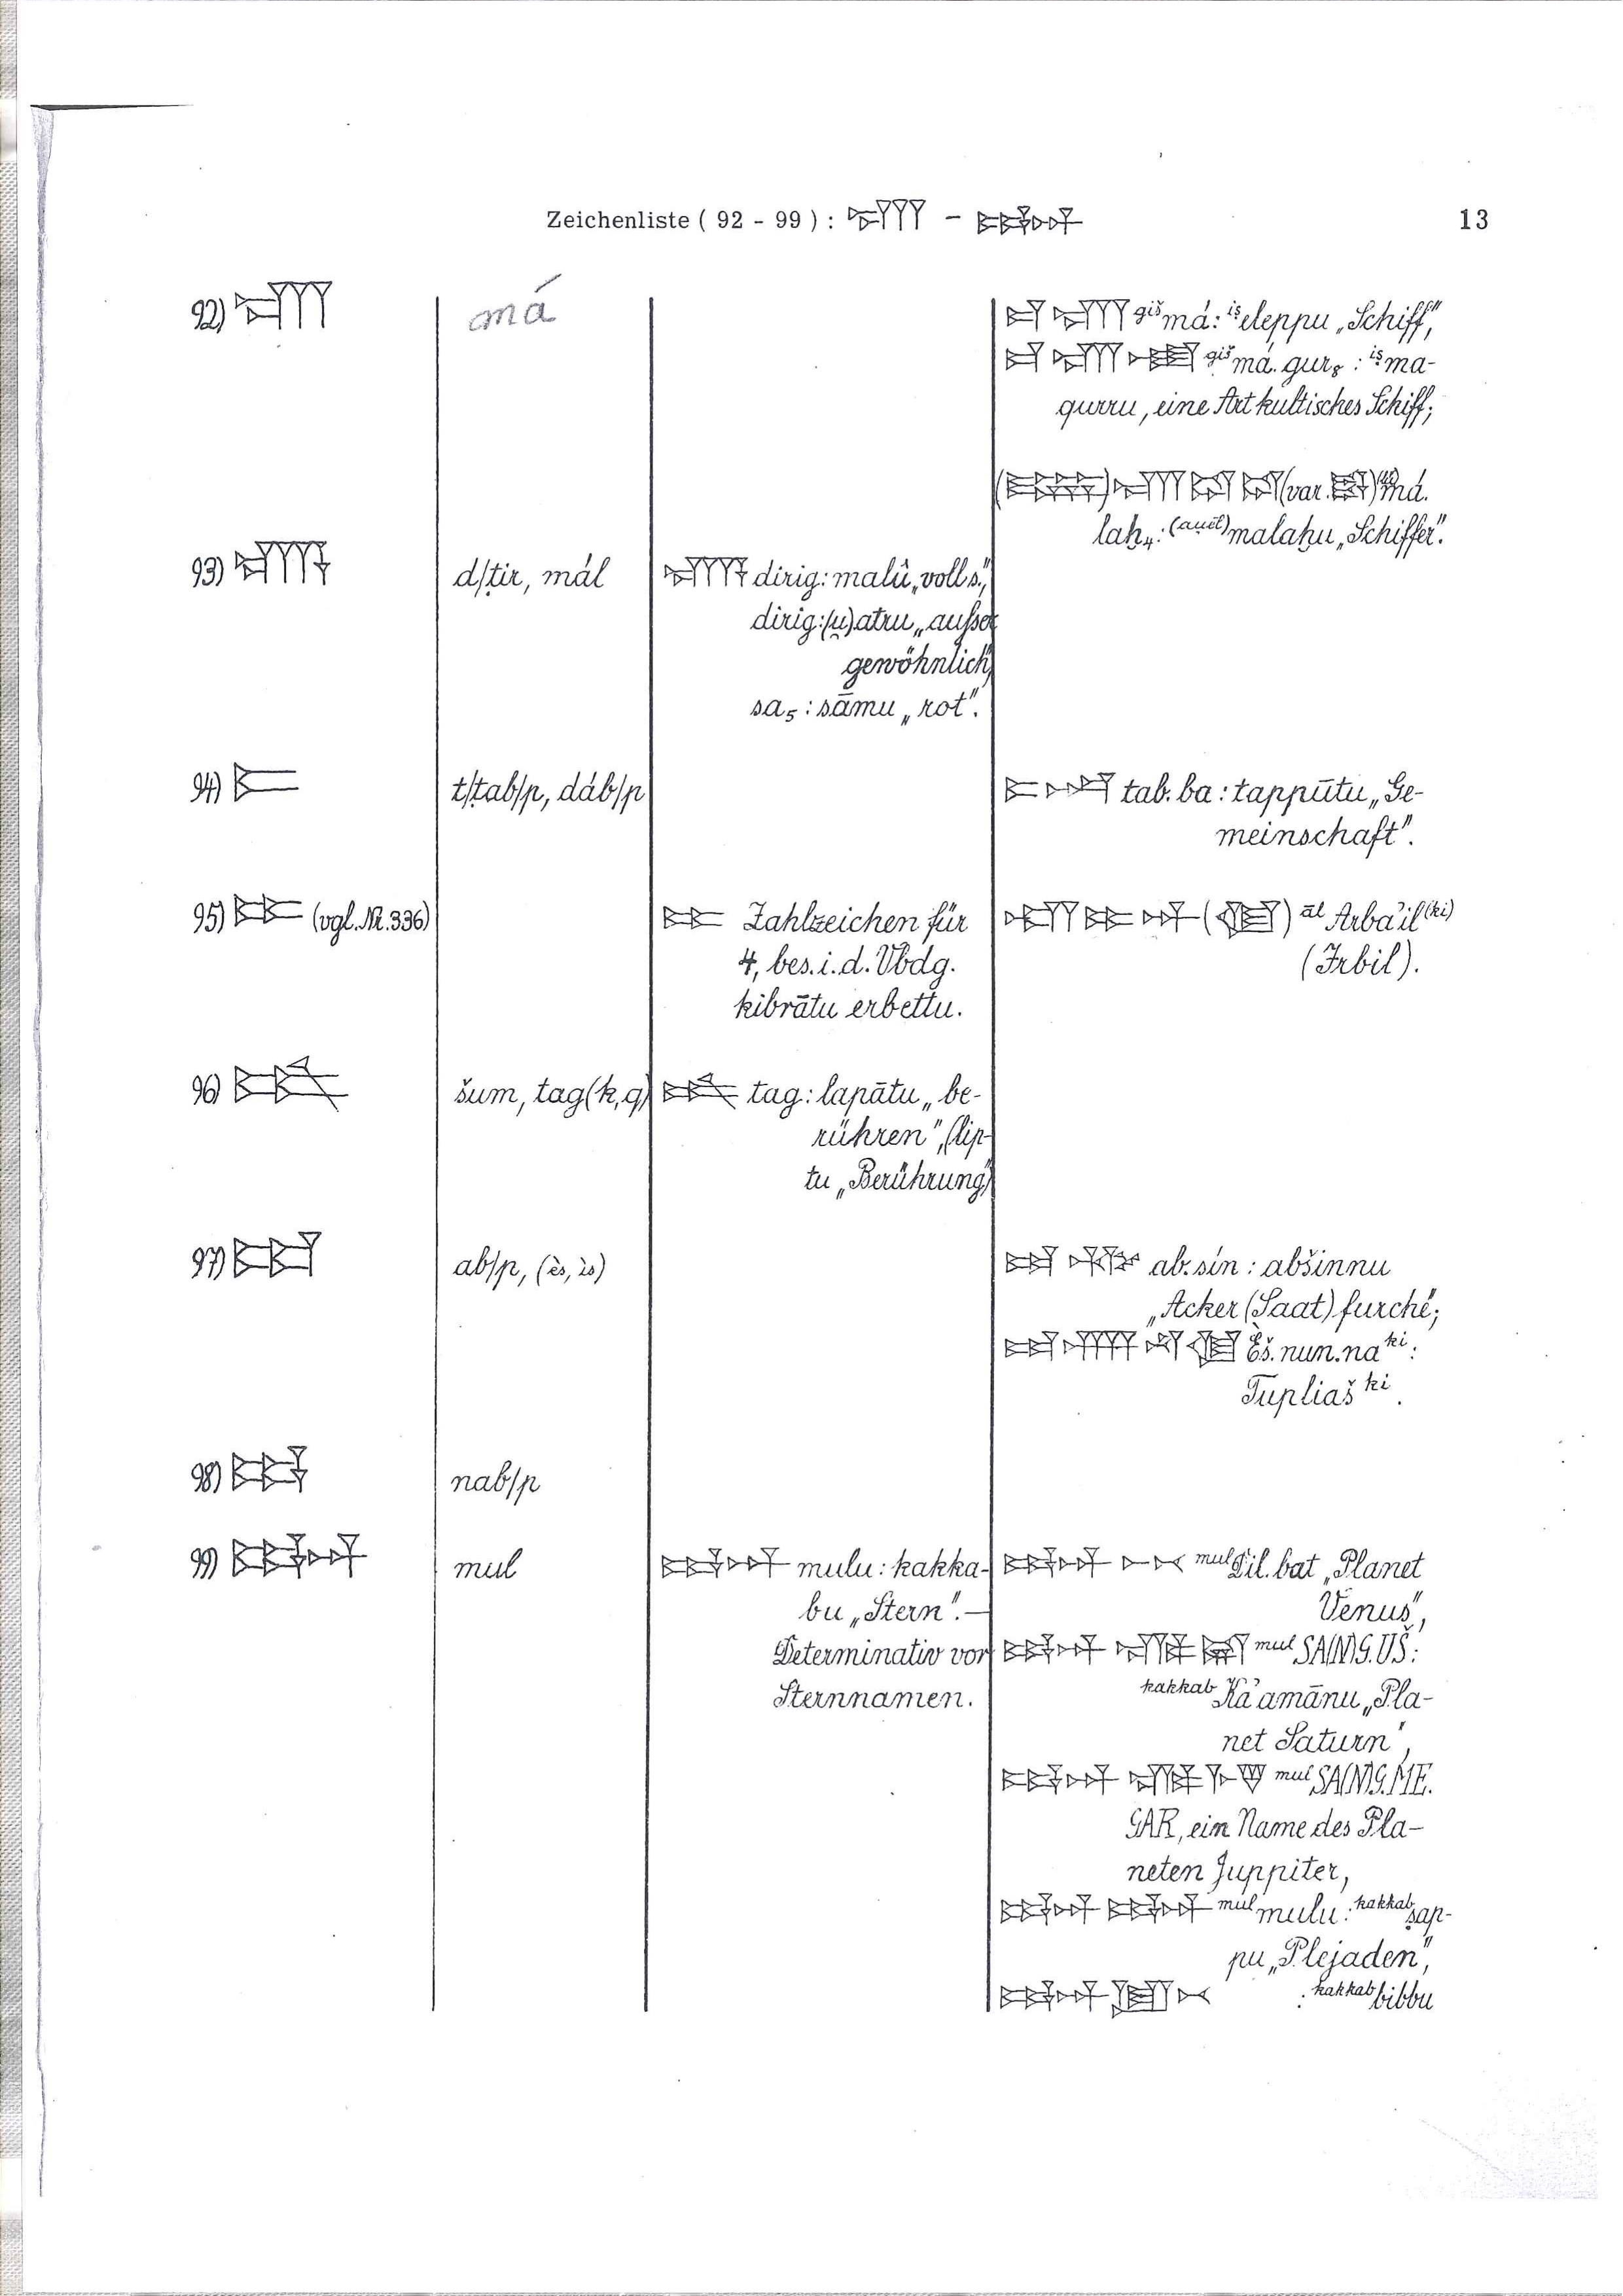 Zeichenliste ( 92 - 99 ) : 𒈣 – 𒀯 13
92) 𒈣 má 𒄑 𒈣 ᵍⁱˢ̌má: ⁱṣeleppu „Schiff",
𒄑 𒈣 ᵍⁱˢ̌má.gur₈ : ⁱṣma-
gurru, eine Art kultisches Schiff;
𒈣 𒁻 𒁻 (var. má.
laḫ₄: malaḫu „Schiffer".
93) d/ṭir, mál dirig: malû „voll s.",
dirig:(u̯)atru „außer
gewöhnlich",
sa₅ : sāmu „rot".
94) 𒋰 t/ṭab/p, dáb/p 𒋰 𒁀 tab.ba : tappūtu „Ge-
meinschaft".
95) (vgl. Nr. 336) Zahlzeichen für
4, bes. i. d. Vbdg.
kibrātu erbettu.
𒌷 𒀭 (𒆠) ᵃ̄ˡ Arba'il⁽ᵏⁱ⁾
(Irbil).
96) 𒋳 šum, tag(k,q) 𒋳 tag: lapātu „be-
rühren", (lip-
tu „Berührung")
97) 𒀊 ab/p, (ès, ìs) 𒀊 𒉆 ab.sín : abšinnu
„Acker(Saat)furche";
𒀊 𒉣 𒈾 𒆠 Èš.nun.naᵏⁱ :
Tupliašᵏⁱ.
98) 𒀮 nab/p
99) 𒀯 mul 𒀯 mulu: kakka-
bu „Stern". –
Determinativ vor
Sternnamen.
𒀯 𒀸 𒁁 ᵐᵘˡDil.bat „Planet
Venus",
𒀯 𒊕 𒍑 ᵐᵘˡSA(N)G.UŠ:
ᵏᵃᵏᵏᵃᵇKa'amānu „Pla-
net Saturn",
𒀯 𒊕 𒈨 𒃻 ᵐᵘˡSA(N)G.ME.
GAR, ein Name des Pla-
neten Juppiter,
𒀯 𒀯 ᵐᵘˡmulu: ᵏᵃᵏᵏᵃᵇṣap-
pu „Plejaden",
𒀯 𒇻 𒁁 : ᵏᵃᵏᵏᵃᵇbibbu